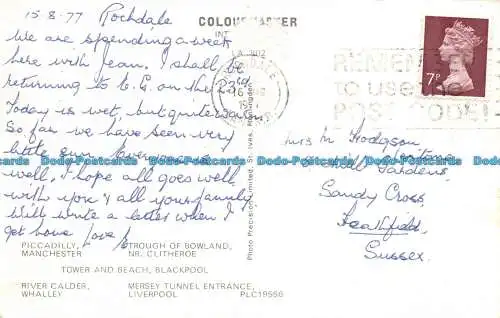 15-8-77 Rochdale
COLOURMASTER
INT
We are spending a week
here with Jean. I shall be
returning to C.E. on the 23rd
Today is wet, but quite warm.
So far we have seen very
little sun. Everyone is
well, I hope all goes well
with you & all your family
Will write a letter when I
get home love
REMEMBER
to use the
POST CODE!
7P
Mrs M Hodgson
Gardens
Sandy Cross,
Heathfield,
Sussex.
Dodo-Postcards
Photo Precision Limited, St. Ives, Huntingdon
PICCADILLY, TROUGH OF BOWLAND,
MANCHESTER NR. CLITHEROE
TOWER AND BEACH, BLACKPOOL
RIVER CALDER, MERSEY TUNNEL ENTRANCE,
WHALLEY LIVERPOOL PLC19556